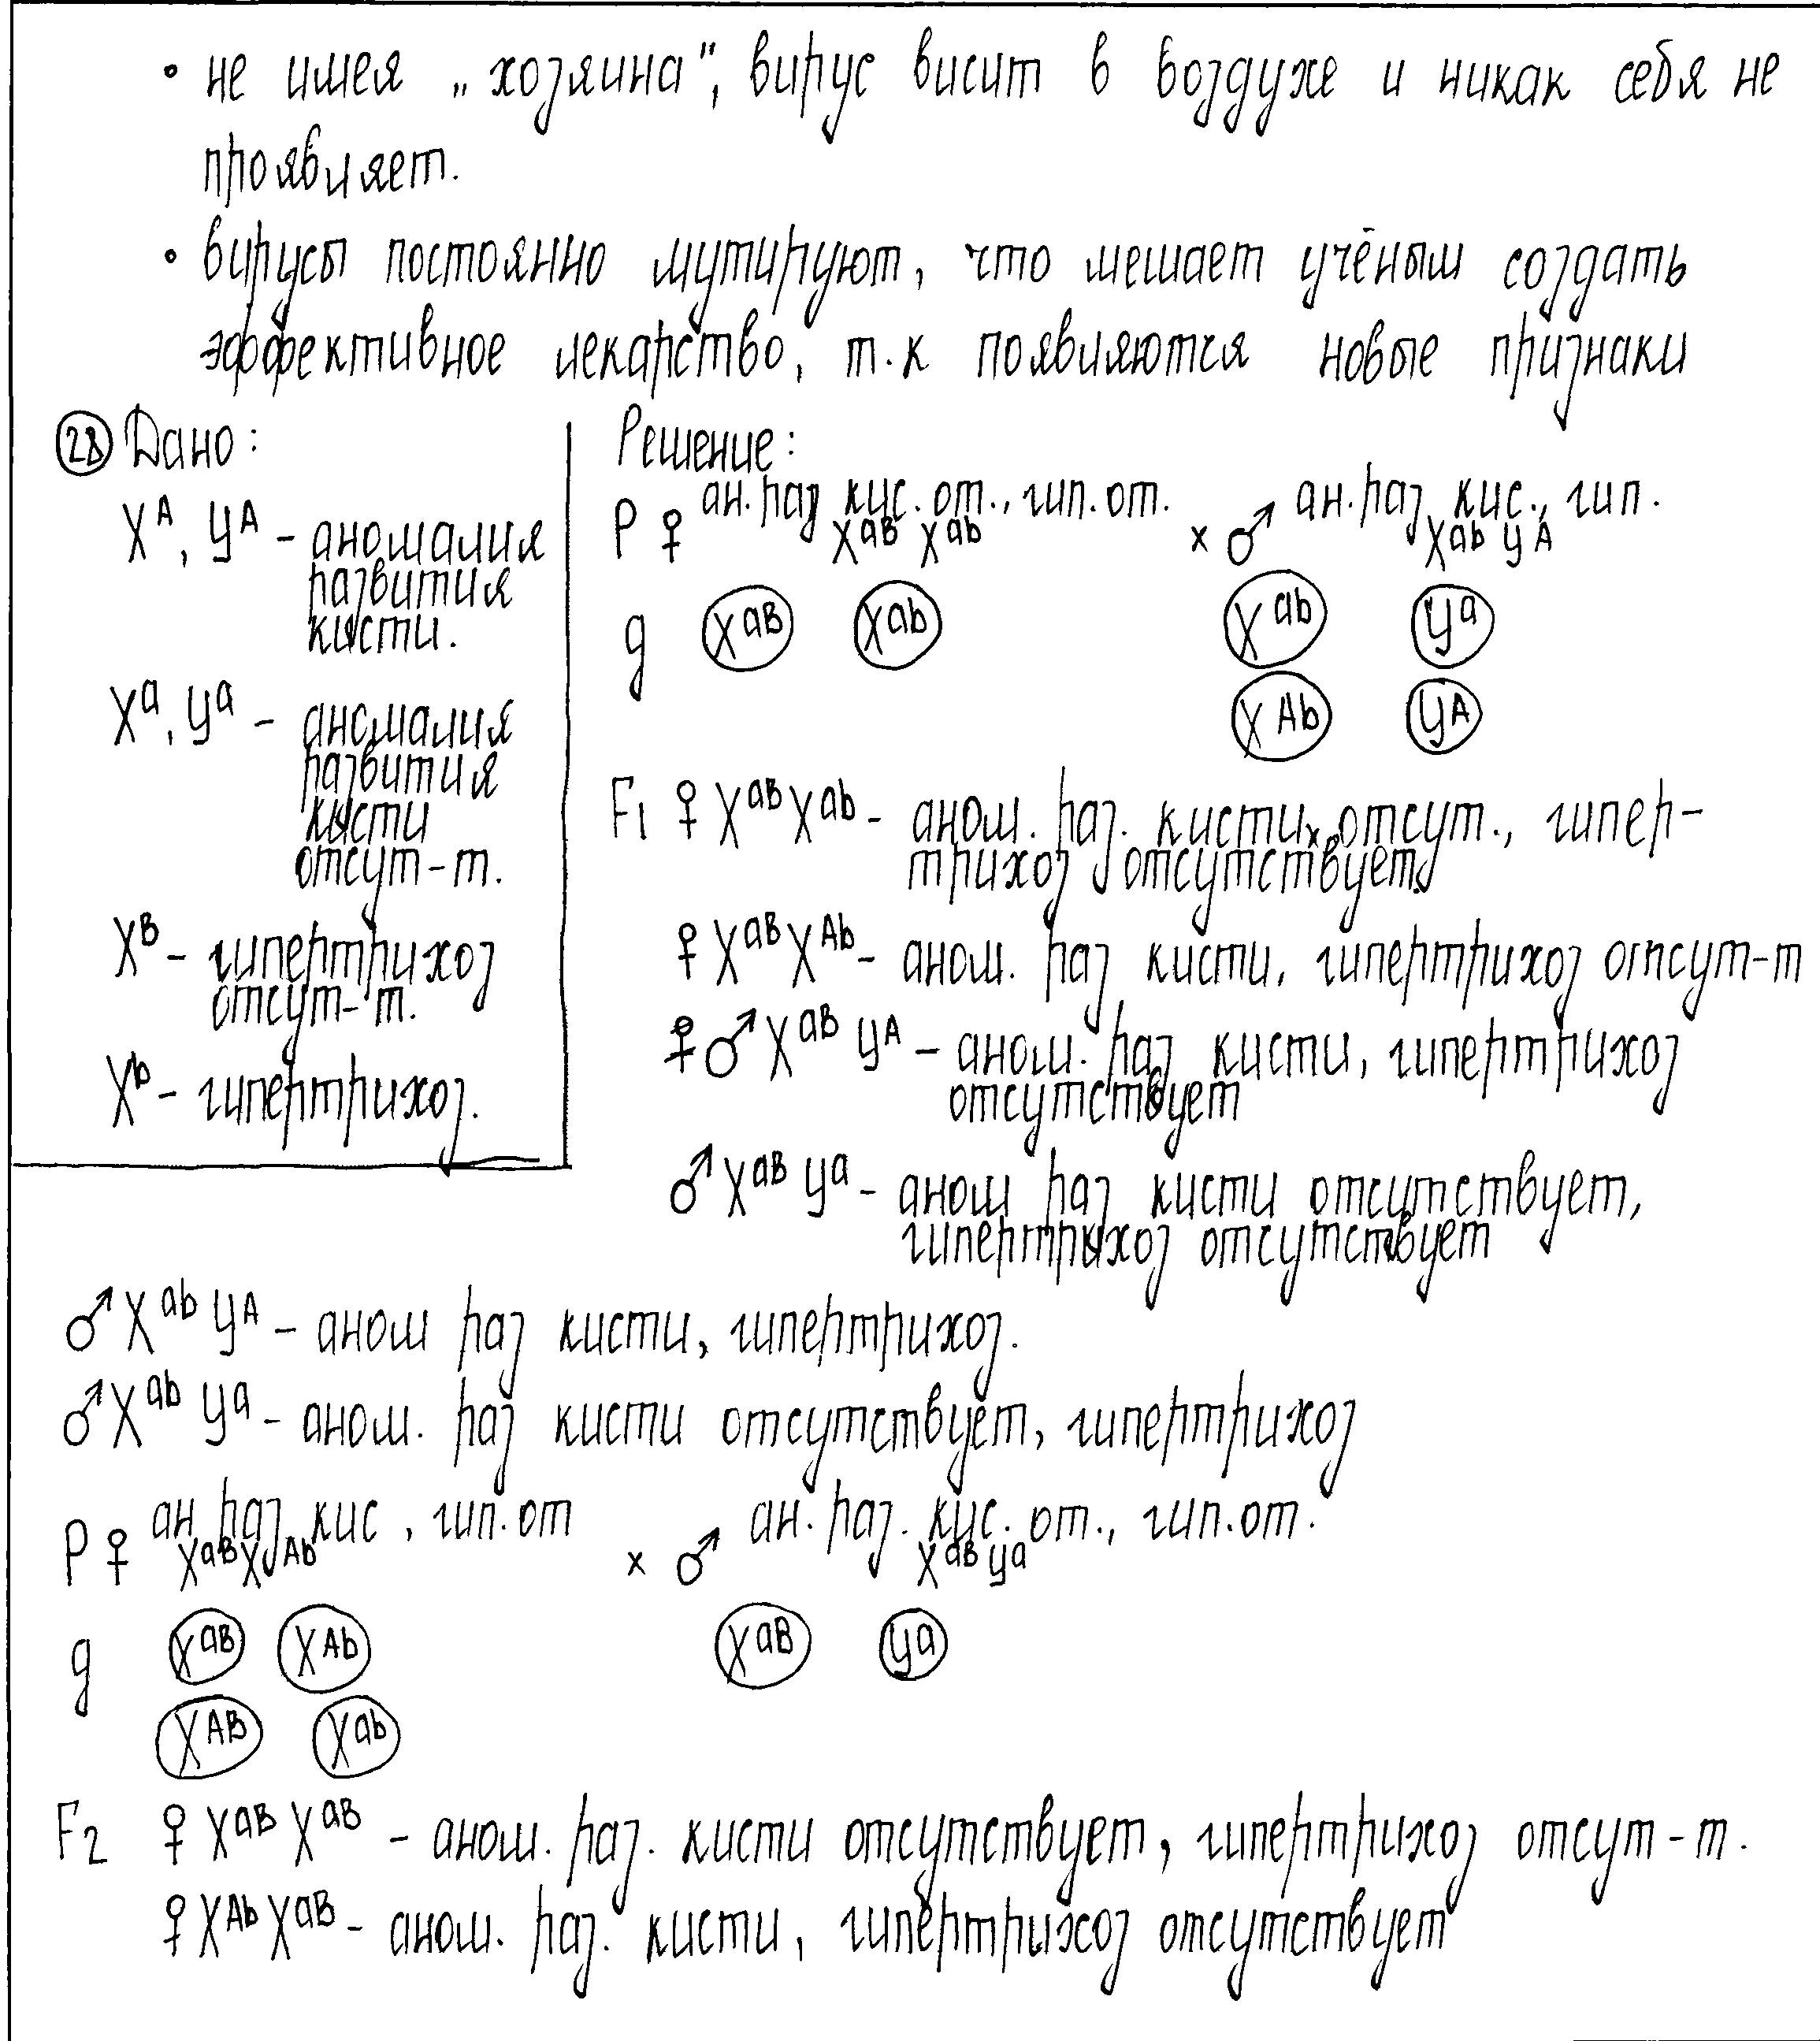 • не имея „хозяина", вирус висит в воздухе и никак себя не
проявляет.
• вирусы постоянно мутируют, что мешает учёным создать
эффективное лекарство, т.к появляются новые признаки
28 Дано:
X^A, У^A - аномалия
развития
кисти.
X^a, У^a - аномалия
развития
кисти
отсут-т.
X^B - гипертрихоз
отсут-т.
X^b - гипертрихоз.
Решение:
ан. раз кис. от., гип. от. ан. раз кис., гип.
P ♀ X^aB X^ab x ♂ X^ab У^A
g X^aB X^ab X^ab У^a
X^Ab У^A
F1 ♀ X^aB X^ab - аном. раз. кисти отсут., гипер-
трихоз отсутствует
♀ X^aB X^Ab - аном. раз кисти, гипертрихоз отсут-т
♂ X^aB У^A - аном. раз кисти, гипертрихоз
отсутствует
♂ X^aB У^a - аном раз кисти отсутствует,
гипертрихоз отсутствует
♂ X^ab У^A - аном раз кисти, гипертрихоз.
♂ X^ab У^a - аном. раз кисти отсутствует, гипертрихоз
ан раз кис, гип. от ан. раз. кис. от., гип. от.
P ♀ X^aB X^Ab x ♂ X^aB У^a
g X^aB X^Ab X^aB У^a
X^AB X^ab
F2 ♀ X^aB X^aB - аном. раз. кисти отсутствует, гипертрихоз отсут-т.
♀ X^Ab X^aB - аном. раз. кисти, гипертрихоз отсутствует